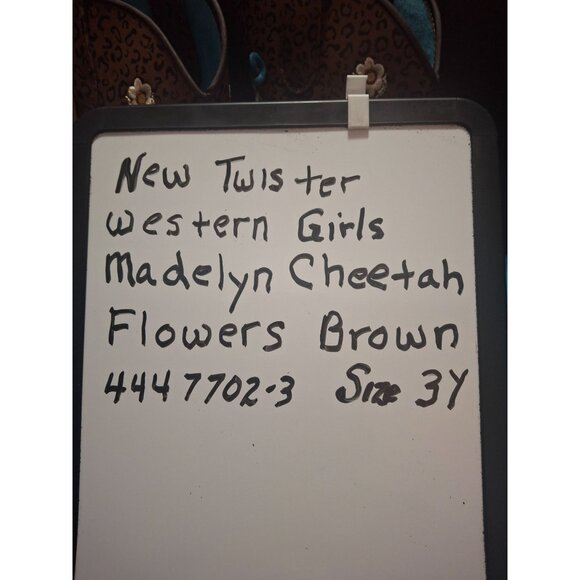 New Twister
Western Girls
Madelyn Cheetah
Flowers Brown
4447702-3 Size 3Y